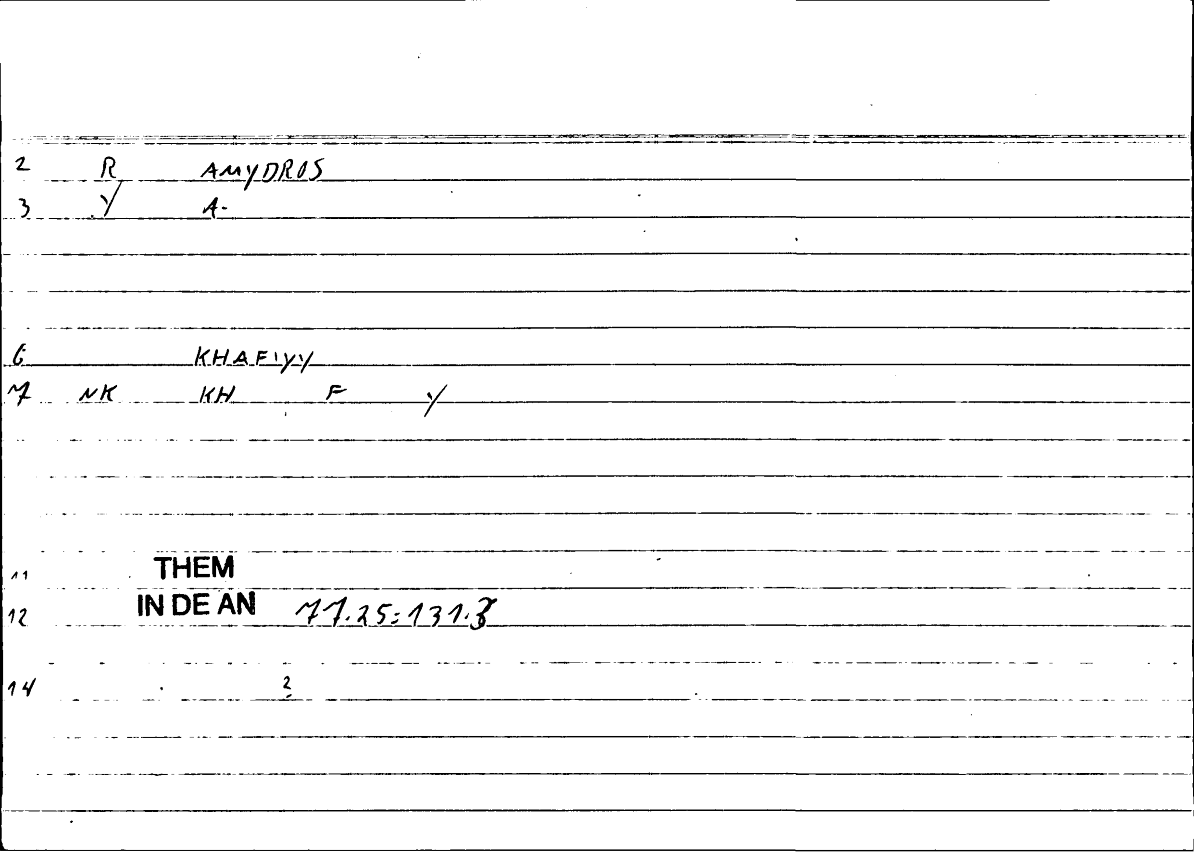 2 R AMYDROS
3 Y A-
6 KHAFIYY
7 NK KH F Y
11 THEM
12 IN DE AN 77.25:131.3
14 2